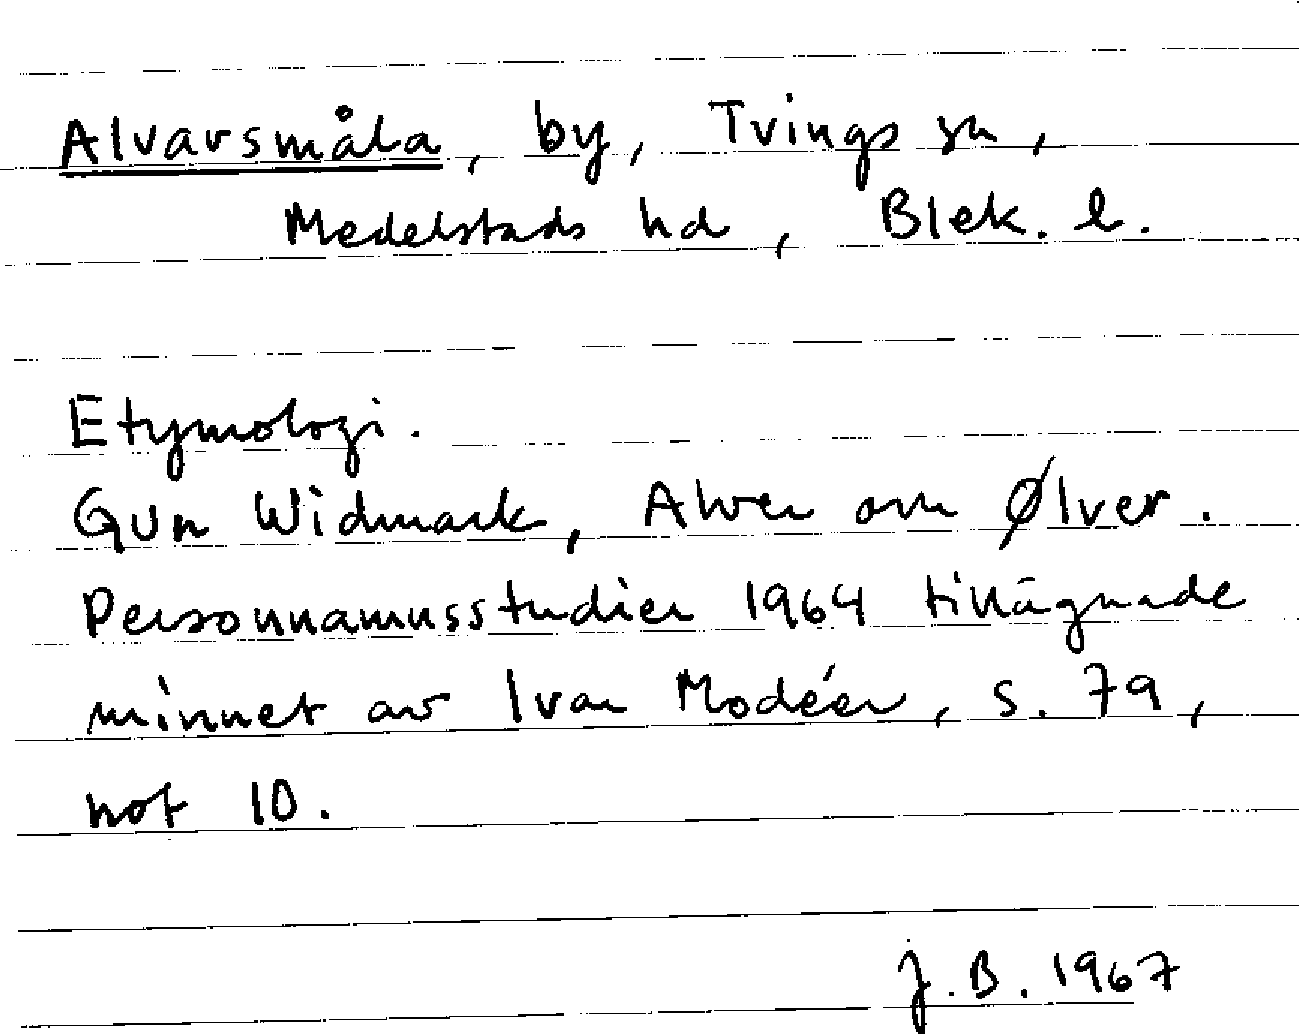 Alvarsmåla, by, Tvings sn,
Medelstads hd, Blek. l.
Etymologi.
Gun Widmark, Alver och Ølver.
Personnamnsstudier 1964 tillägnade
minnet av Ivar Modéer, s. 79,
not 10.
J.B. 1967